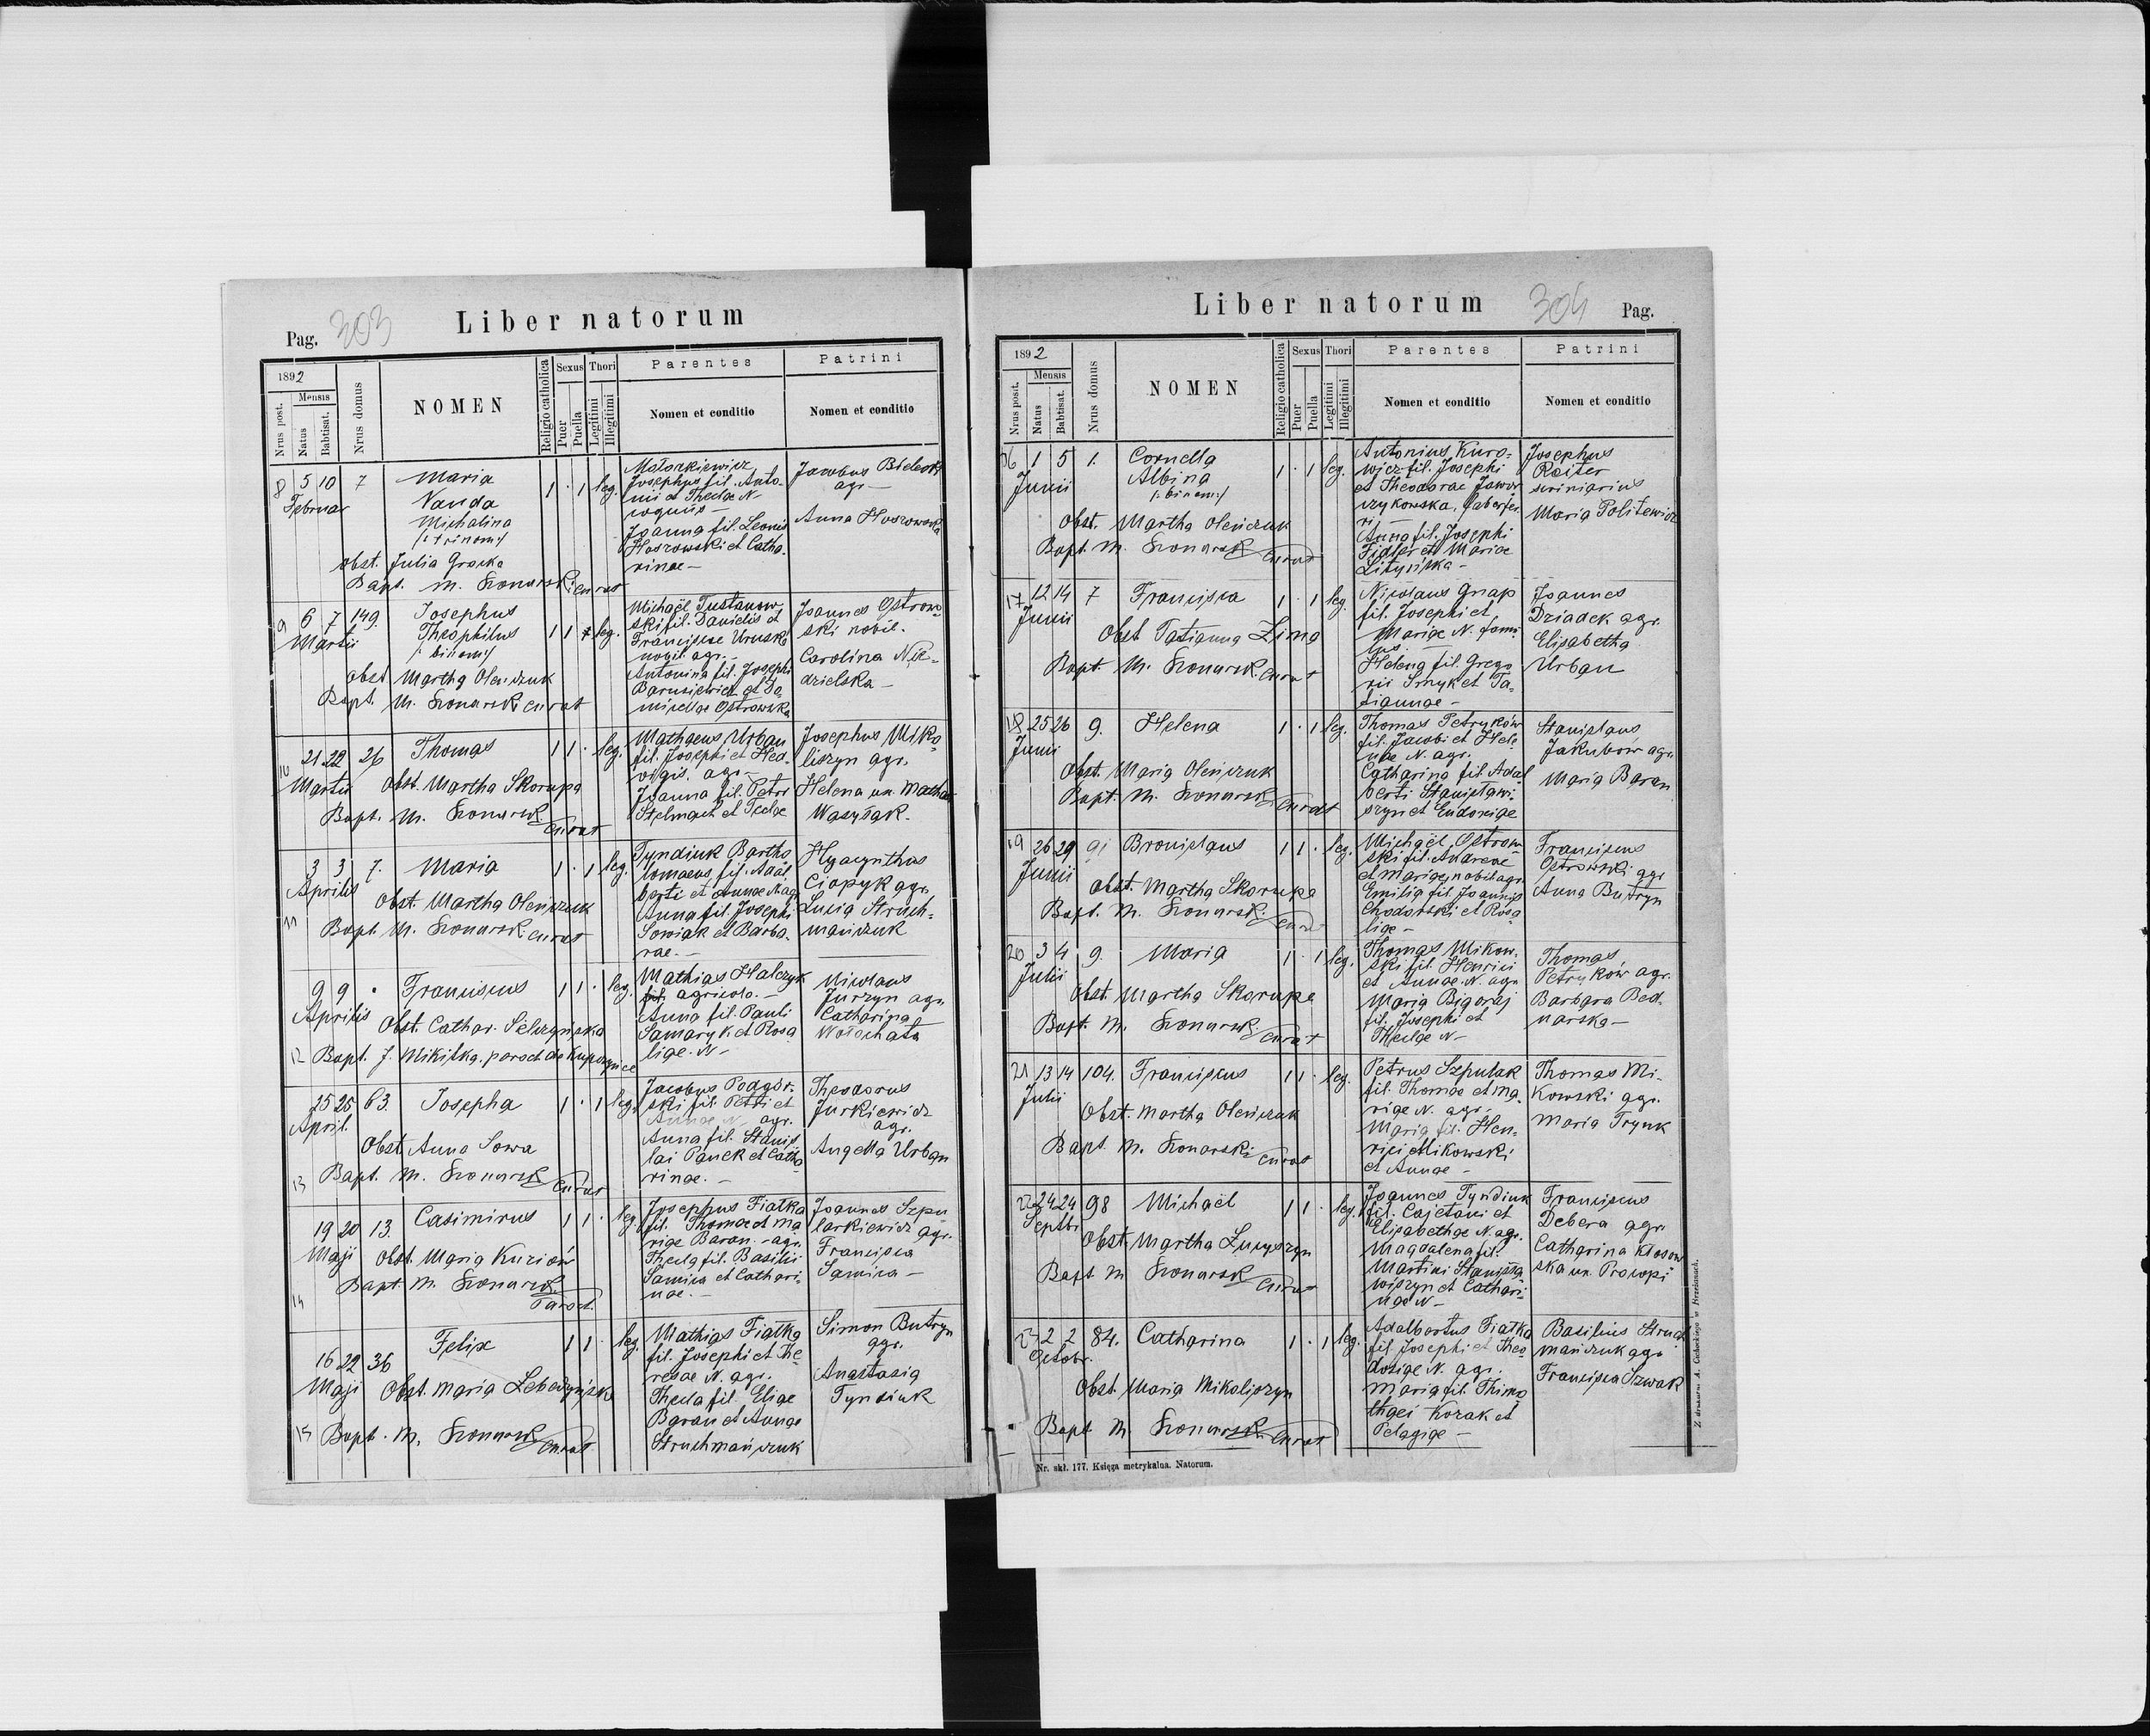 Liber natorum
Pag. 303
1892
Nrus post.
Mensis
Natus
Babtisat.
Nrus domus
NOMEN
Religio catholica
Sexus
Puer
Puella
Thori
Legitimi
Illegitimi
Parentes
Nomen et conditio
Patrini
Nomen et conditio
8 5 10 7 Maria 1 . 1 leg.
Februar Vanda
Michalina
/: trinom :/
obst. Julia Gracka
Bapt. M. Konarski curat
Małarkiewicz
Josephus fil. Anto-
nii et Theclae N
coquus –
Joanna fil. Leonis
Hoszowski et Catha-
rinae –
Jacobus Bielecki
agr –
Anna Hoszowska
9 6 7 149. Josephus 1 1 leg.
Martii Theophilus
/: binom :/
obst Martha Oleńczuk
Bapt. M. Konarski curat
Michaël Tustanow-
ski fil. Danielis et
Franciscae Uruska
nobil. agr. –
Antonina fil. Josephi
Barusiewicz et Do-
micellae Ostrowska
Joannes Ostrow-
ski nobil.
Carolina Nie-
dzielska –
10 21 22 26 Thomas 1 1 . leg.
Martii Obst. Martha Skorupa
Bapt. M. Konarski curat
Mathaeus Urban
fil. Josephi et Hed-
vigis, agr –
Joanna fil. Petri
Stelmach et Teclae
Josephus Miko-
liszyn agr.
Helena ux. Mathaei
Wasyłak.
3 3 7. Maria 1 . 1 leg.
Aprilis
Obst. Martha Oleńczuk
11 Bapt M. Konarski curat
Tyndiuk Bartho-
lomaeus, fil. Adal-
berti et Annae N agr
Anna fil. Josephi
Sowiak et Barba-
rae. –
Hyacynthus
Ciopyk agr.
Lucia Struch-
mańczuk
9 9 . Franciscus 1 1 . leg.
Aprilis
Obst. Cathar. Selezyńska
12 Bapt. J. Mikitka, paroch de Kupczynce
Mathias Halczyk
fil. agricola. –
Anna fil. Pauli
Samaryk et Rosa-
liae. N –
Nicolaus
Jurzyn agr.
Catharina
Wołochata
25 25 63. Josepha 1 . 1 leg.
April.
Obst. Anna Sowa
13 Bapt. M. Konarski curat
Jacobus Podgór-
ski fil. Petri et
Annae N agr.
Anna fil. Stanis-
lai Panek et Catha-
rinae. –
Theodorus
Jurkiewicz
agr.
Angella Urban
19 20 13. Casimirus 1 1 . leg
Maji Obst. Maria Kuziów
Bapt. M. Konarski
14 Paroch.
Josephus Fiatka
fil. Thomae et Ma-
riae Baran. – agr.
Thecla fil. Basilii
Samica et Cathari-
nae. –
Joannes Szpu-
larkiewicz agr.
Francisca
Samica –
Felix 1 1 . leg.
16 22 36
Maji Obst. Maria Lebedyńska
15 Bapt. M. Konarski curat
Mathias Fiatka
fil. Josephi et The-
resae N. agr.
Thecla fil. Eliae
Baran et Annae
Struchmańczuk
Simon Butryn
agr.
Anastasia
Tyndiuk
Liber natorum
304 Pag.
1892
Nrus post.
Mensis
Natus
Babtisat.
Nrus domus
NOMEN
Religio catholica
Sexus
Puer
Puella
Thori
Legitimi
Illegitimi
Parentes
Nomen et conditio
Patrini
Nomen et conditio
16 1 5 1. Cornella 1 . 1 leg.
Junii Albina
/: binom :/
Obst. Martha Oleńczuk
Bapt. M. Konarski curat
Antonius Kuro-
wicz fil. Josephi
et Theodorae Jawor-
czykowska, faber fer-
ri –
Anna fil. Josephi
Fidler et Mariae
Lityńska –
Josephus
Reiter
scriniarius
Maria Politewicz
17 12 14 7 Francisca 1 . 1 leg
Junii
Obst Tatianna Zima
Bapt. M. Konarski curat
Nicolaus Gnap
fil. Josephi et
Mariae N. famu-
lus. –
Helena fil. Grego-
rii Smyk et Ta-
tiannae –
Joannes
Dziadek agr.
Elisabetha
Urban
18 25 26 9. Helena 1 . 1 leg.
Junii
Obst. Maria Oleńczuk
Bapt. M. Konarski curat
Thomas Petryków
fil. Jacobi et Hele-
nae N. agr.
Catharina fil Adal-
berti Stanisławi-
szyn et Eudoxiae
Stanislaus
Jakubów agr.
Maria Baran
19 26 29 91 Bronislaus 1 1 . leg.
Junii
Obst. Martha Skorupa
Bapt. M. Konarski curat
Michaël Ostrow-
ski fil. Andreae
et Mariae, nobil agr.
Emilia fil. Joannis
Chodorski et Rosa-
liae –
Franciscus
Ostrowski agr
Anna Butryn
20 3 4 9. Maria 1 . 1 leg.
Julii
Obst. Martha Skorupa
Bapt. M. Konarski curat
Thomas Mikow-
ski fil. Henrici
et Annae. N. agr.
Maria Bigoraj
fil. Josephi et
Theclae N –
Thomas
Petryków agr.
Barbara Bed-
narska –
21 13 14 104. Franciscus 1 1 . leg.
Julii
Obst. Martha Oleńczuk
Bapt. M. Konarski curat
Petrus Szpulak
fil. Thomae et Ma-
riae N. agr.
Maria fil. Hen-
rici Mikowski
et Annae –
Thomas Mi-
kowski agr.
Maria Trynk
22 24 24 98 Michaël 1 1 . leg.
Septbr.
Obst. Martha Lucyszyn
Bapt. M Konarski curat
Joannes Tyndiuk
fil. Cajetani et
Elisabethae N. agr.
Magdalena fil.
Martini Stanisła-
wiszyn et Cathari-
nae N –
Franciscus
Debera agr.
Catharina Kłosow-
ska ux. Procopi
23 2 2 84. Catharina 1 . 1 leg.
Octobr.
Obst. Maria Mikoliszyn
Bapt. M. Konarski curat
Adalbertus Fiatka
fil Josephi et Theo-
dosiae N. agr.
Maria fil. Thimo-
thei Kozak et
Pelagiae –
Basilius Struch-
mańczuk agr.
Francisca Szwak
Nr. skł. 177. Księga metrykalna. Natorum.
Z drukarni A. Cichockiego w Brzeżanach.